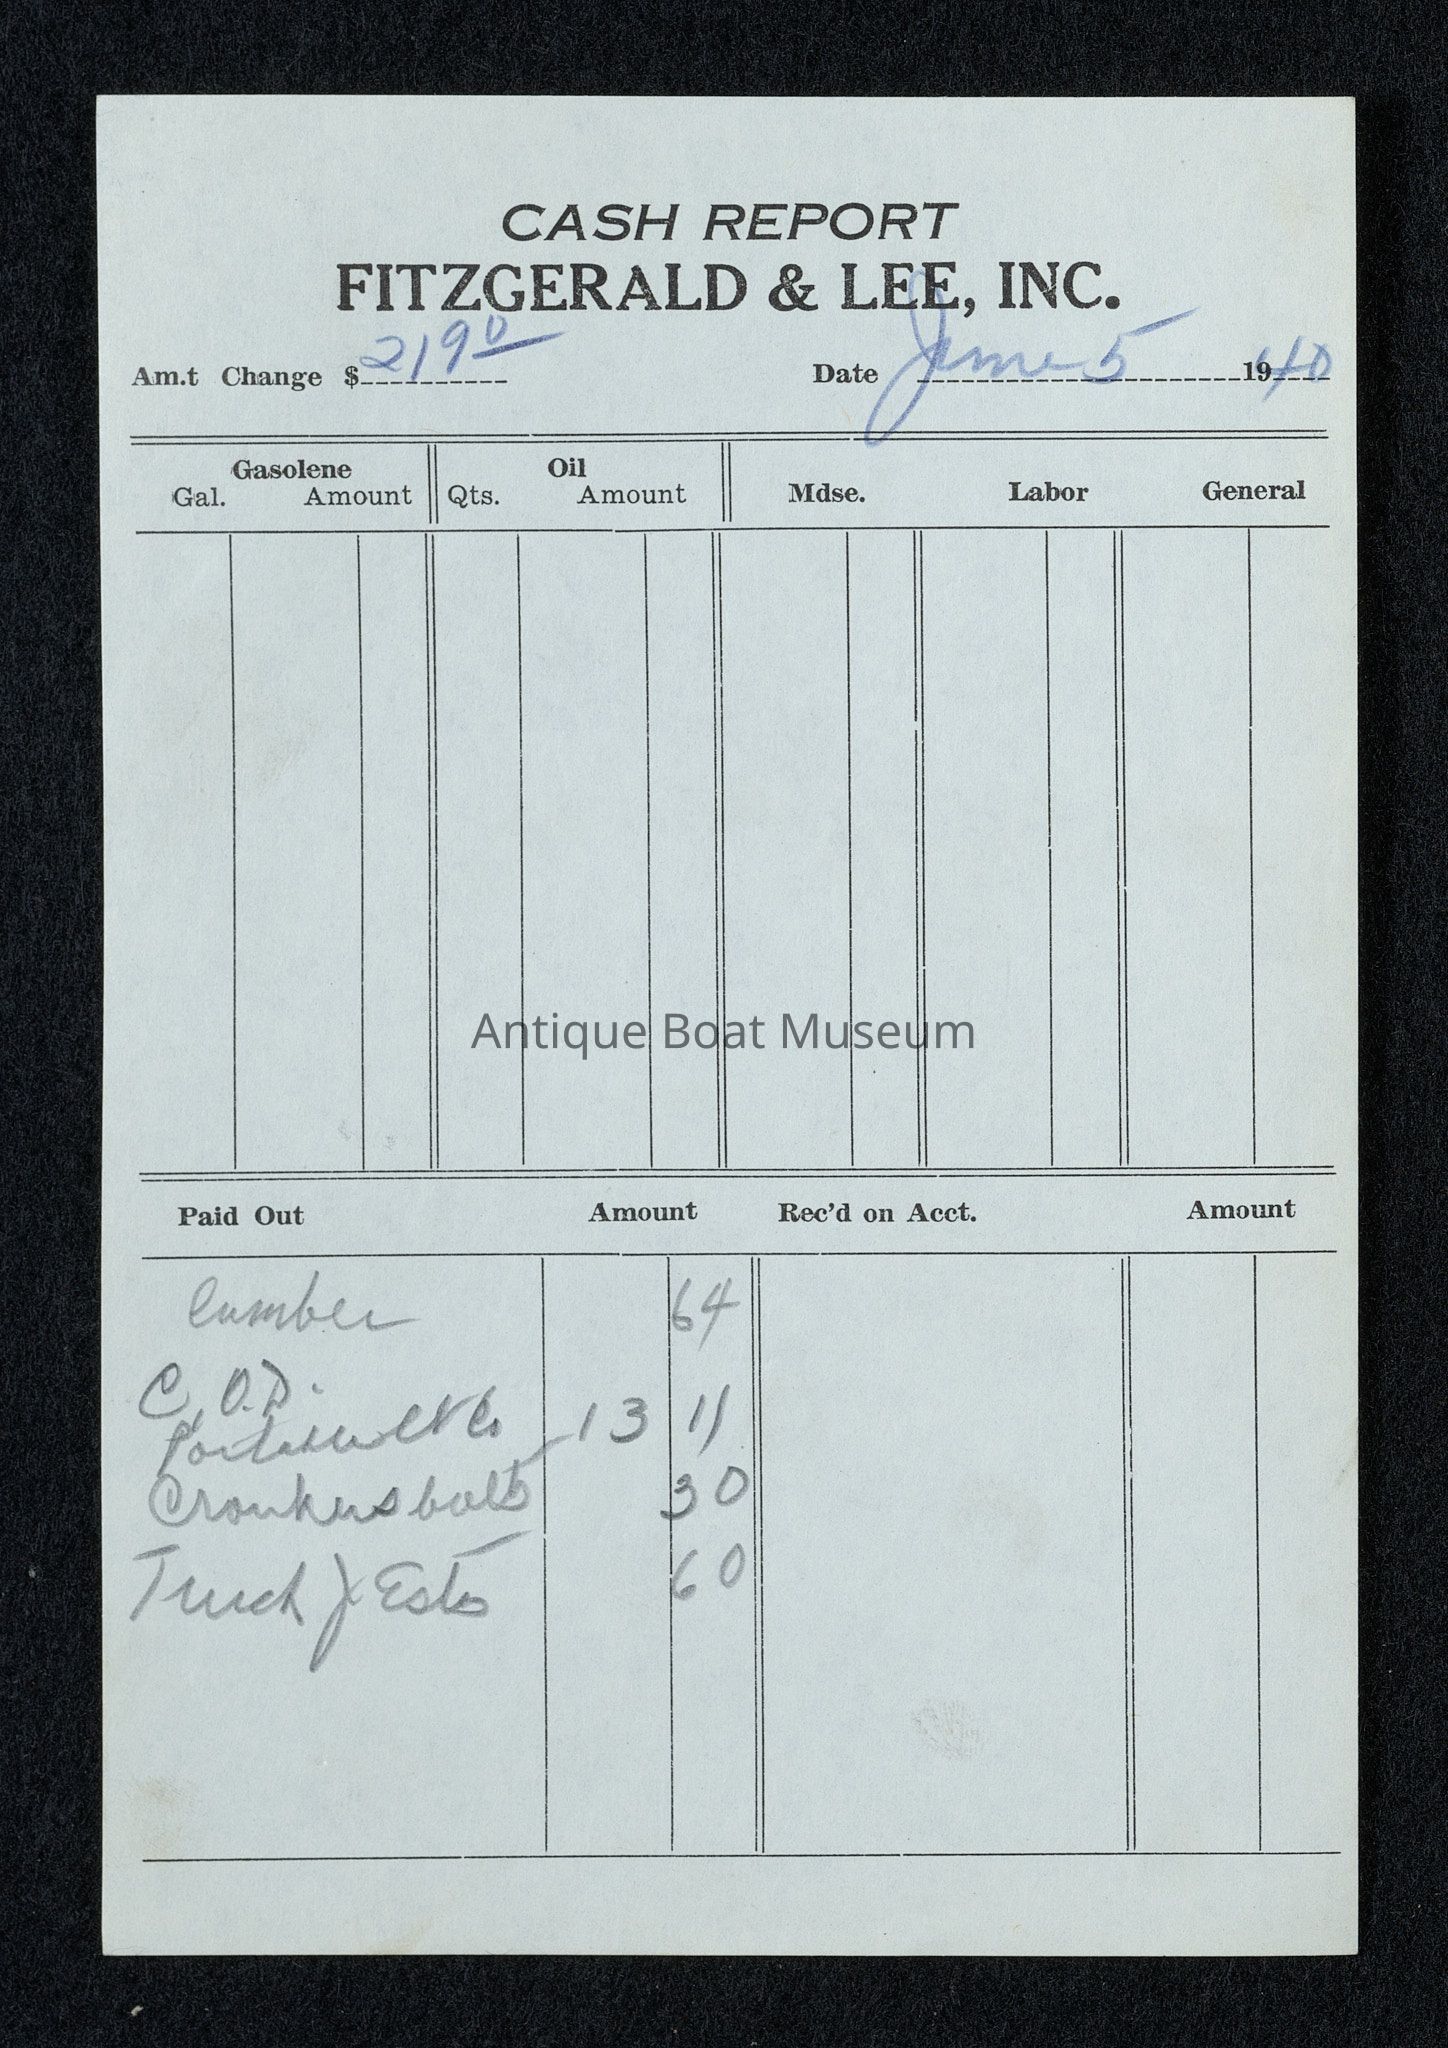 CASH REPORT
FITZGERALD & LEE, INC.
Am.t Change $ 21 90 Date June 5 1940
Gasolene Oil
Gal. Amount Qts. Amount Mdse. Labor General
Antique Boat Museum
Paid Out Amount Rec'd on Acct. Amount
Lumber 64
C.O.D.
& Co 13 11
bolts 30
Truck J 60